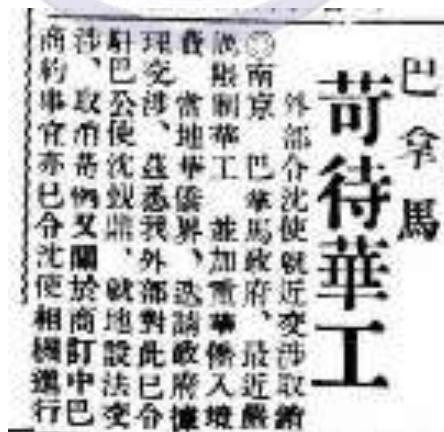 巴拿馬
苛待華工
外部令沈使就近交涉取銷
◎南京　巴拿馬政府、最近嚴
厲限制華工　並加重華僑入境
費　當地華僑界、迭請政府據
理交涉、茲悉我外部對此已令
駐巴公使沈覲鼎、就地設法交
涉、取消苛例又關於商訂中巴
商約事宜亦已令沈使相機進行